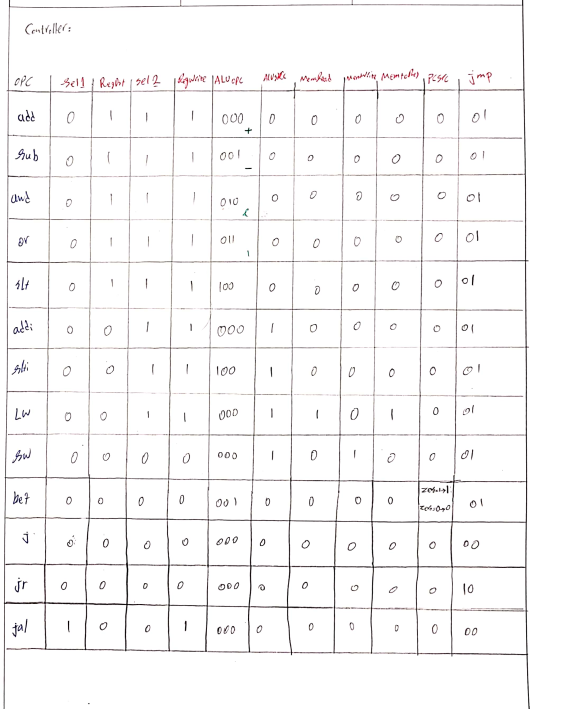 Controller:
OPC sel1 RegDst sel2 RegWrite ALUOPC ALUSRC MemRead MemWrite MemtoReg PCSRC jmp
add 0 1 1 1 000 + 0 0 0 0 0 01
sub 0 1 1 1 001 - 0 0 0 0 0 01
and 0 1 1 1 010 & 0 0 0 0 0 01
or 0 1 1 1 011 | 0 0 0 0 0 01
slt 0 1 1 1 100 0 0 0 0 0 01
addi 0 0 1 1 000 1 0 0 0 0 01
slti 0 0 1 1 100 1 0 0 0 0 01
LW 0 0 1 1 000 1 1 0 1 0 01
sw 0 0 0 0 000 1 0 1 0 0 01
beq 0 0 0 0 001 0 0 0 0 zero=1→1 01
zero=0→0
j 0 0 0 0 000 0 0 0 0 0 00
jr 0 0 0 0 000 0 0 0 0 0 10
jal 1 0 0 1 000 0 0 0 0 0 00